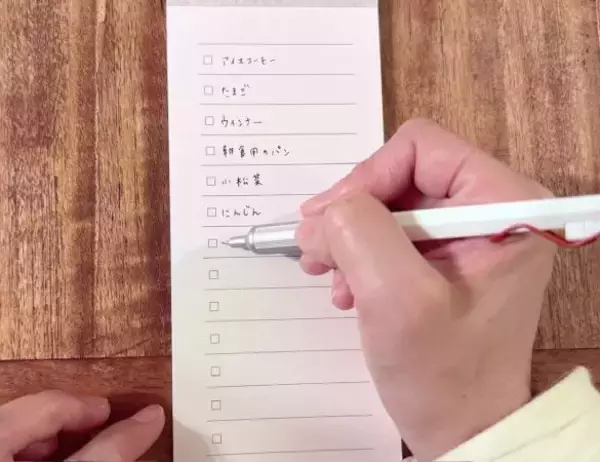 アイスコーヒー
たまご
ウィンナー
朝食用のパン
小松菜
にんじん